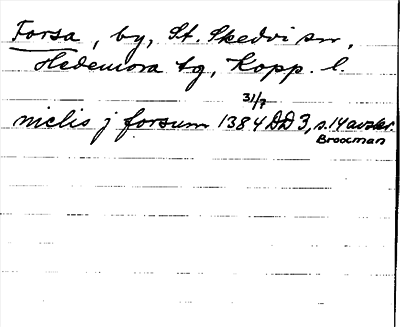 Forsa, by, St. Skedvi sn,
Hedemora tg, Kopp. l.
31/7
niclis j forsum 1384 DD 3, s. 14 avskr.
Broocman